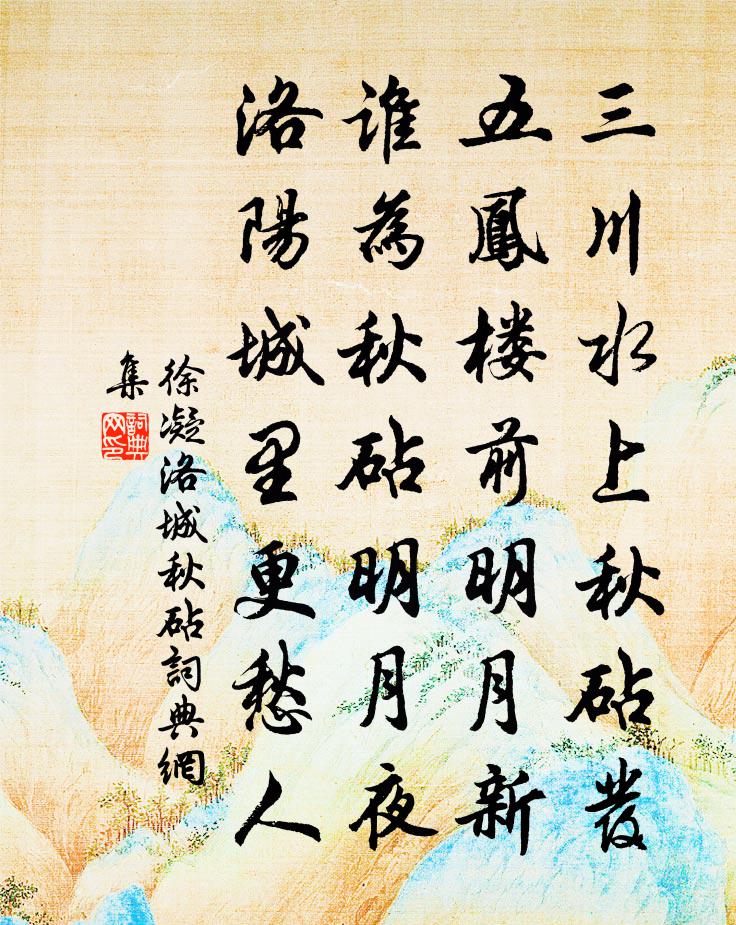 三川水上秋砧發
五鳳楼前明月新
誰為秋砧明月夜
洛陽城里更愁人
徐凝洛城秋砧詞典網
集
詞典网印